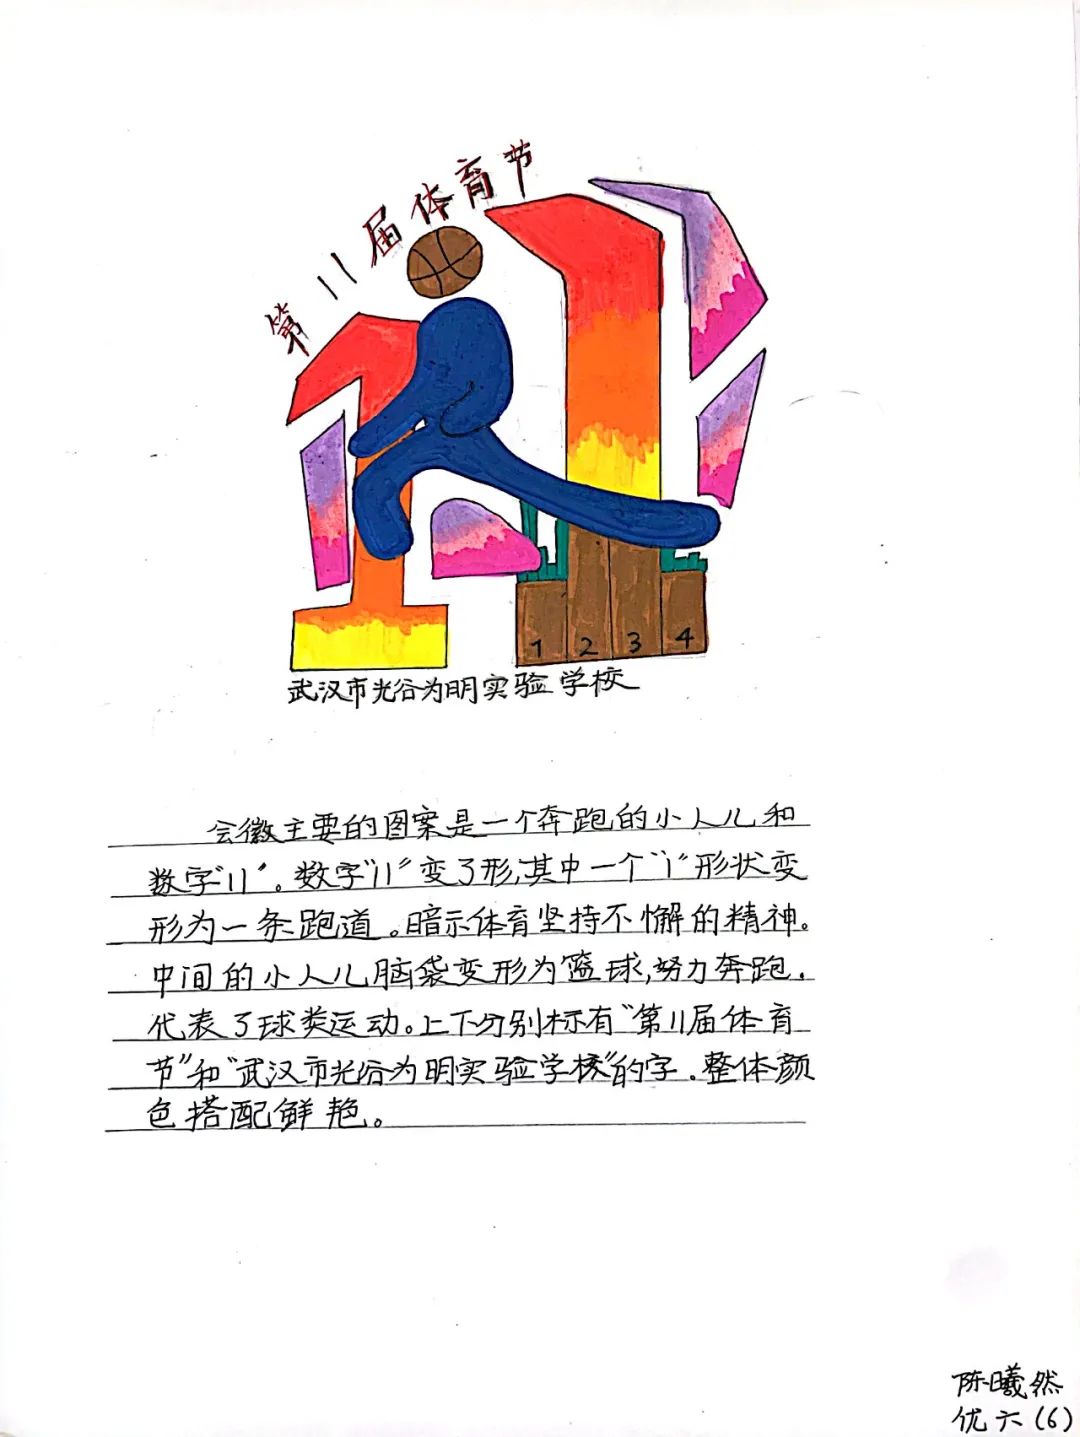 第11届体育节
1 2 3 4
武汉市光谷为明实验学校
会徽主要的图案是一个奔跑的小人儿和
数字"11"。数字"11"变了形,其中一个"1"形状变
形为一条跑道。暗示体育坚持不懈的精神。
中间的小人儿脑袋变形为篮球,努力奔跑.
代表了球类运动。上下分别标有"第11届体育
节"和"武汉市光谷为明实验学校"的字.整体颜
色搭配鲜艳。
陈曦然
优六(6)